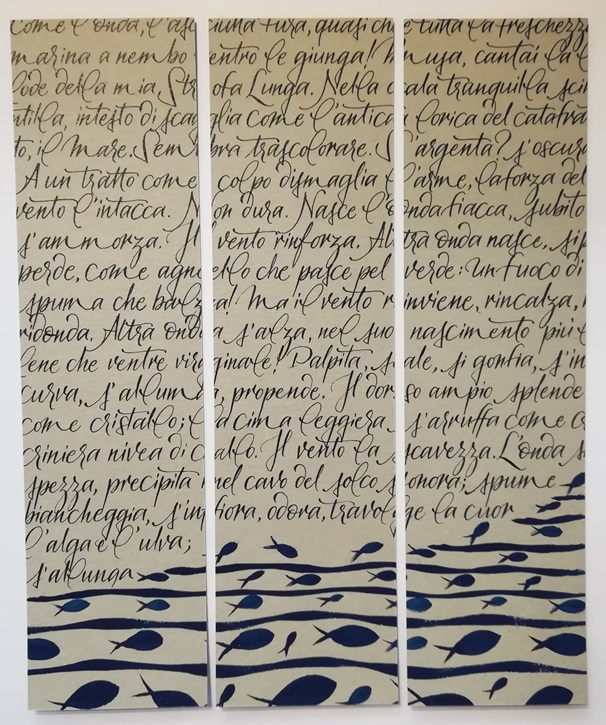 marina a nembo entro le giunga! Musa, cantai la l
lode della mia Strofa Lunga. Nella cala tranquilla scin
ntilla, intesto di scaglia come l'antica lorica del catafra
to, il Mare. Sembra trascolorare. S'argenta? s'oscura
A un tratto come colpo dismaglia l'arme, la forza del
vento l'intacca. Non dura. Nasce l'onda fiacca, subito
s'ammorza. Il vento rinforza. Altra onda nasce, si p
perde, come agnello che pasce pel verde: un fuoco di
spuma che balza! Ma il vento rinviene, rincalza, r
ridonda. Altra onda s'alza, nel suo nascimento più l
lene che ventre virginale! Palpita, sale, si gonfia, s'in
curva, s'alluma, propende. Il dorso ampio splende
come cristallo; la cima leggiera s'arruffa come c
criniera nivea di cavallo. Il vento la scavezza. L'onda s
spezza, precipita nel cavo del solco sonora; spume
biancheggia, s'infiora, odora, travolge la cuor
l'alga e l'ulva;
s'allunga